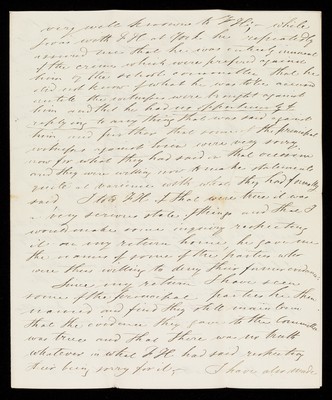 very well known to
from with J H at York he repeatedly
assured me that he was entirely innocent
of the crimes which were prefered against
him by the school committee that he
did not know of what he was to be accused
untill the witnesses were brought against
him and that he had no opportunity of
replying to any thing that was said against
him and further that some of the principal
witnesses against him were very sorry
now for what they had said on that occasion
and they were willing now to make statements
quite at variance with what they had formally
said I told J H if that were true it was
a very serious state of things and that I
would make some inquiry respecting
it on my return home, he gave me
the names of some of the parties who
were thus willing to deny their former evidence
Since my return I have seen
some of the principal parties he then
named and find they still maintain
that the evidence they gave to the Committee
was true and that there was no truth
whatever in what J H had said respecting
their being sorry for it, I have also made